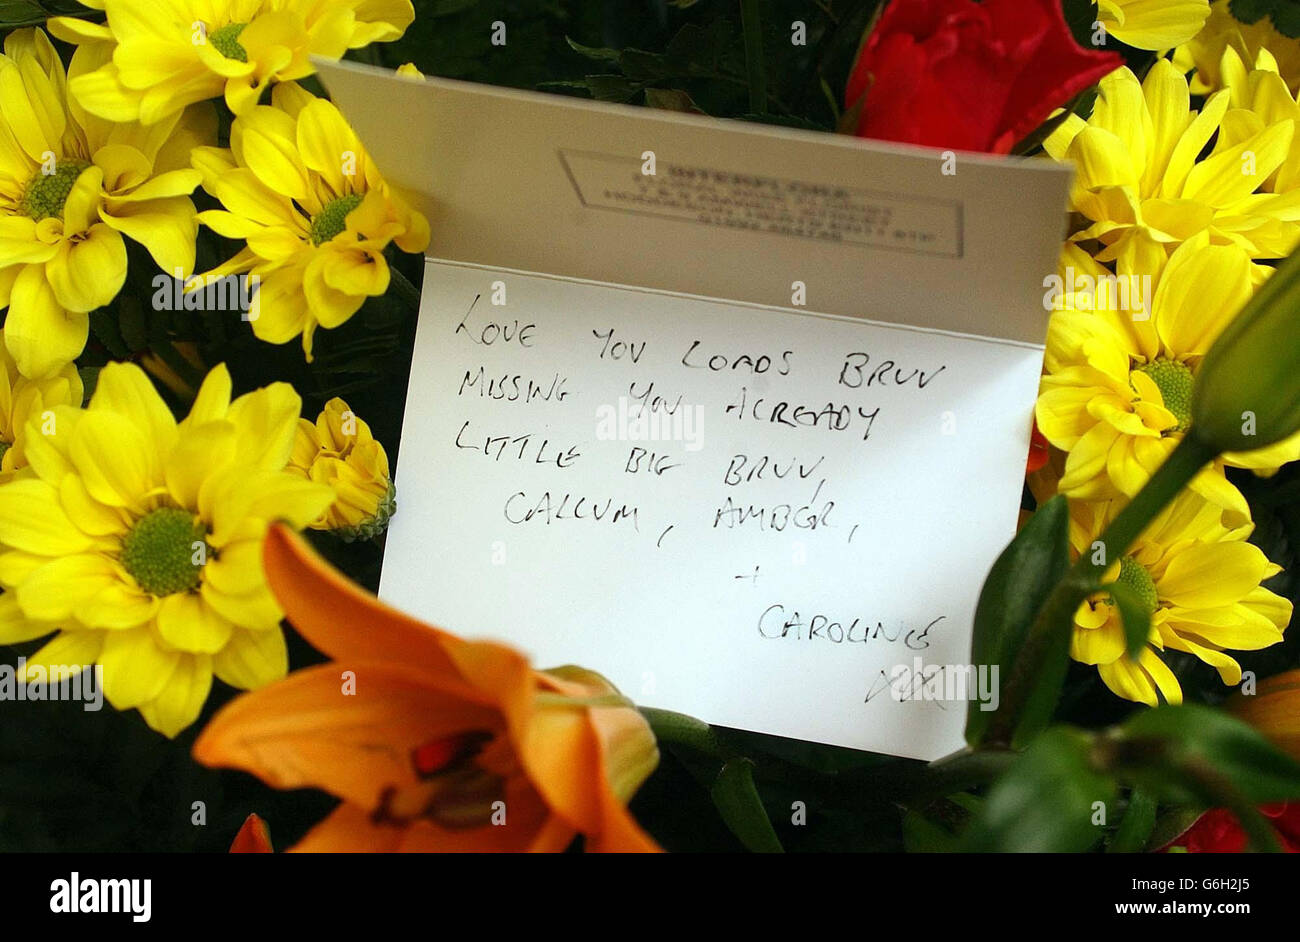 INTERFLORA
LOVE YOU LOADS BRUV
MISSING YOU ALREADY
LITTLE BIG BRUV,
CALLUM, AMBER,
+
CAROLINE
XX
alamy
Image ID: G6H2J5
www.alamy.com